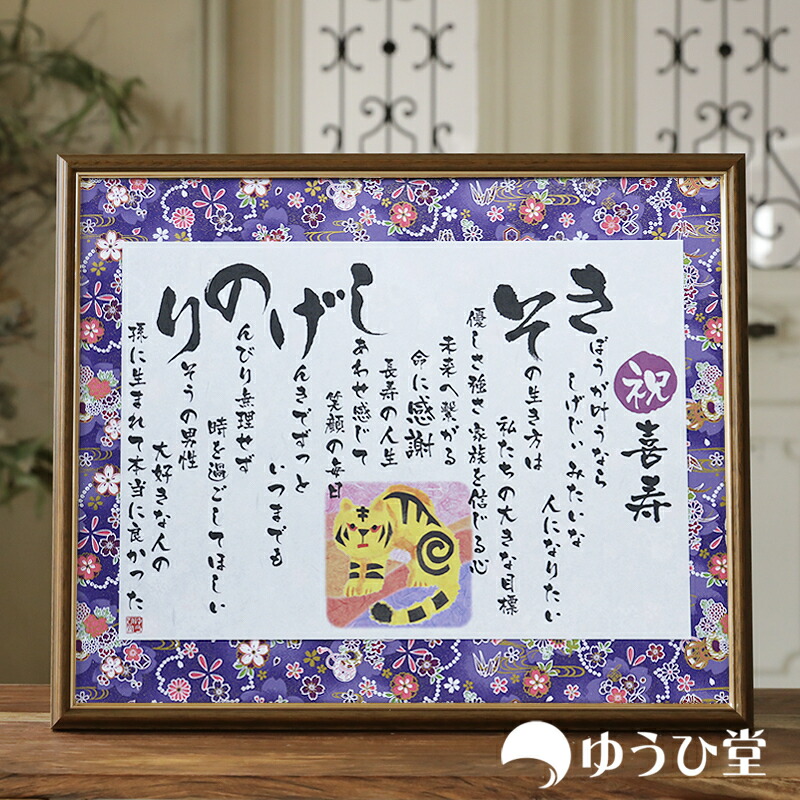 祝
喜寿
きぼうが叶うなら
しげじぃみたいな
人になりたい
その生き方は
私たちの大きな目標
優しさ強さ 家族を信じる心
未来へ繋がる
命に感謝
長寿の人生
しあわせ感じて
笑顔の毎日
げんきでずっと
いつまでも
のんびり無理せず
時を過ごしてほしい
りそうの男性
大好きな人の
孫に生まれて本当に良かった
ゆうひ堂